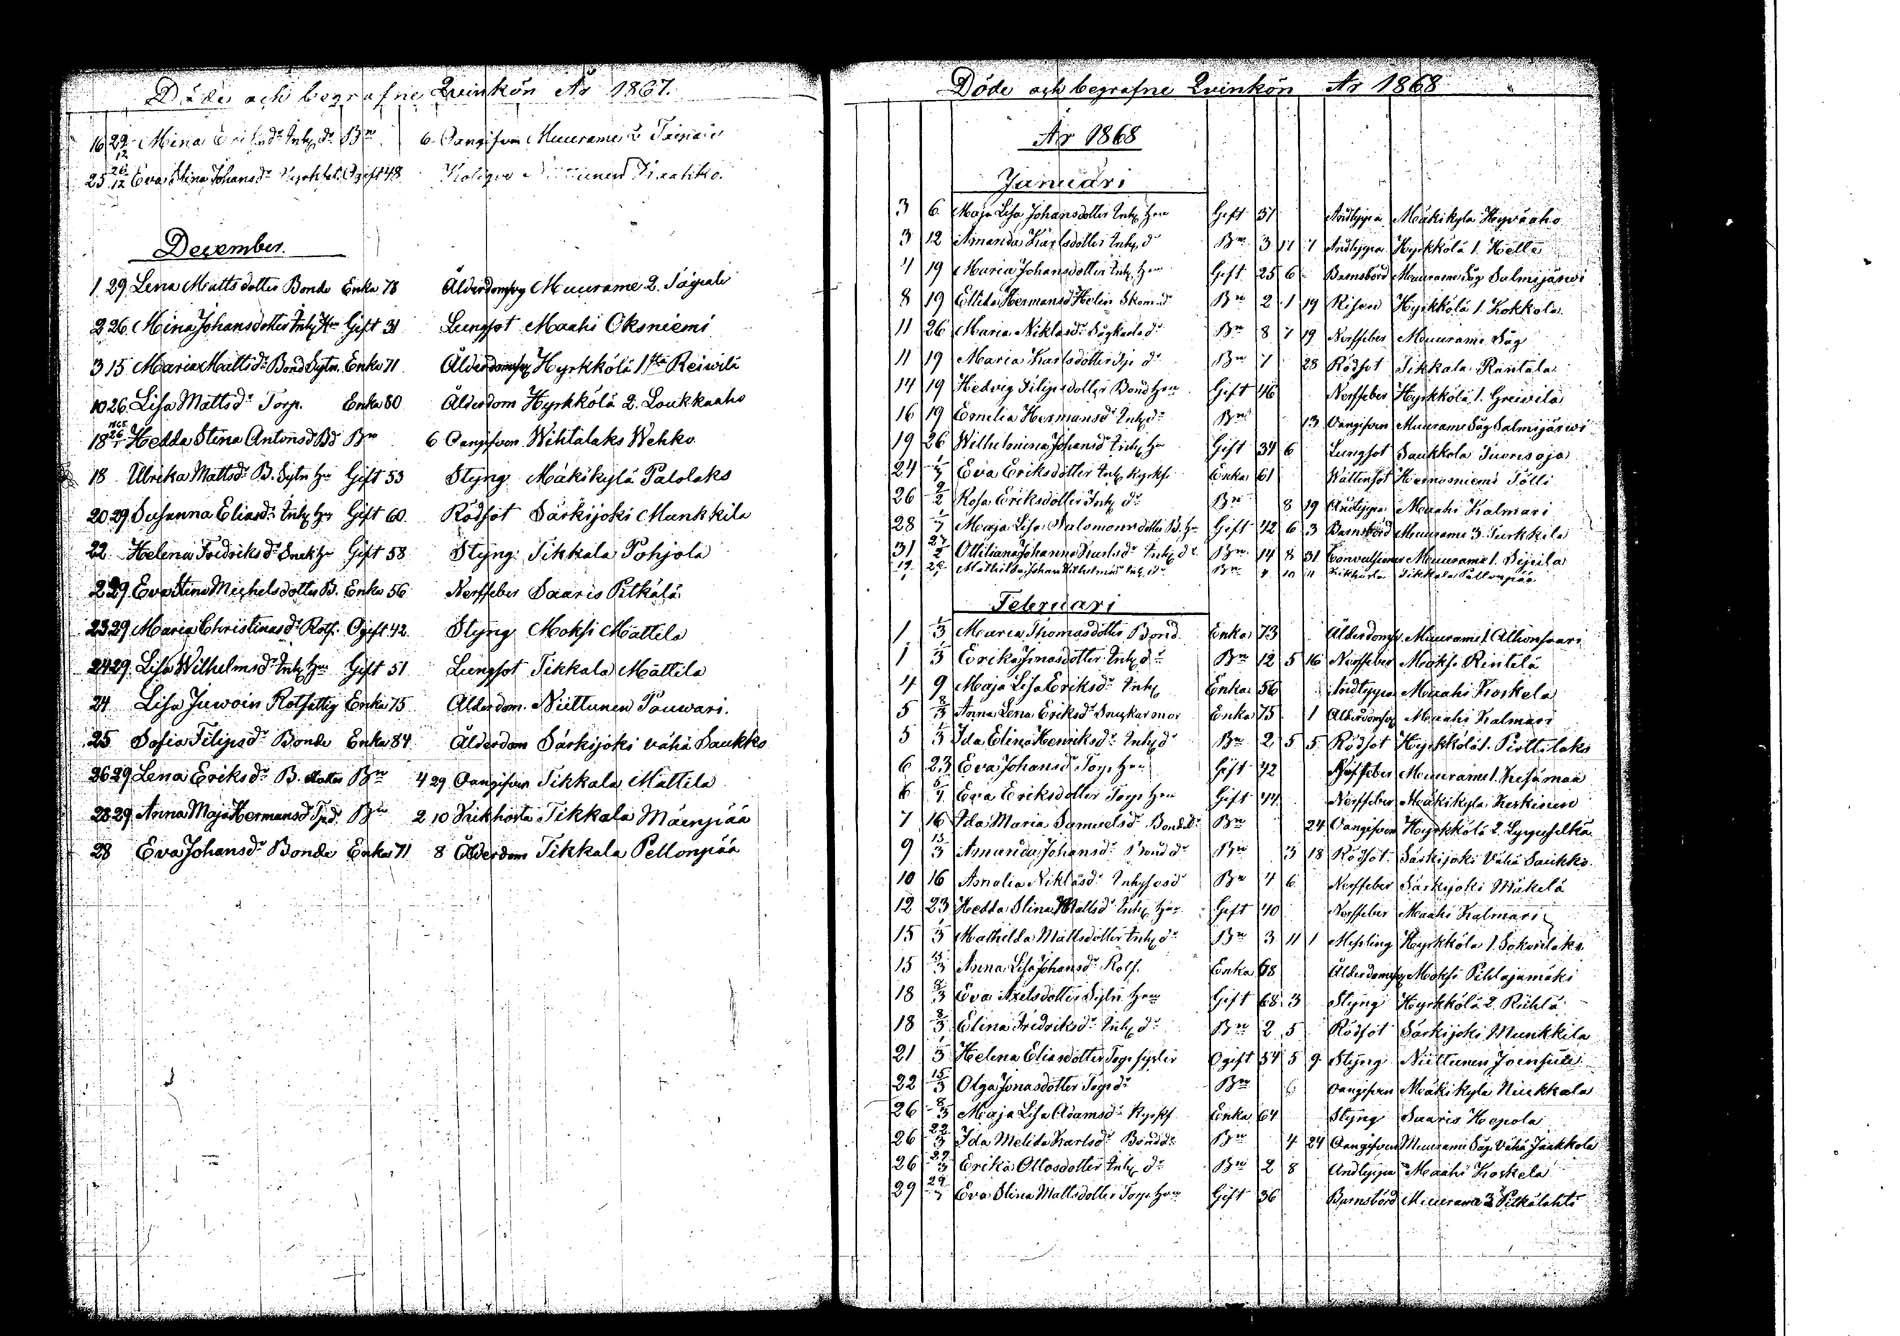 Döde och begrafne Qvinkön År 1867.
16 29/12 Mina Inhs dr Bn 6 Oangifven Muurame 2
25 26/12 Eva Stina Johansdr Ogift 48 Kolique Niittunen Kaakko
December.
1 29 Lena Mattsdotter Bonde Enka 78 Ålderdomsvg Muurame 2.
2 26 Mina Johansdotter Inhs Hu Gift 31 Lungsot Maahi Oksniemi
3 15 Maria Mattsdr Bond Sytn. Enka 71 Ålderdomsvg Hyrkkölä 1sta Reiwilä
10 26 Lisa Mattsdr Torp. Enka 80 Ålderdom Hyrkkölä 2. Loukkaaho
18 1868 26/1 Hedda Stina Antonsdr Bd Bn 6 Oangifven Wihtalaks Wehko
18 Ulrika Mattsdr B. Sytn Hu Gift 53 Styng Mäkikylä Palolaks
20 29 Susanna Eliasdr Inhs Hu Gift 60 Rödsot Särkijoki Munkkila
22 Helena Fredriksdr Snek Hu Gift 58 Styng Tikkala Pohjola
22 29 Eva Stina Michelsdotter B. Enka 56 Nerffeber Saaris Pitkälä
23 29 Maria Christinasdr Rotf. Ogift 42 Styng Moksi Mattila
24 29 Lisa Wilhelmsdr Inhs Hu Gift 51 Lungsot Tikkala Mattila
24 Lisa Juwoin Rotfattig Enka 75 Ålderdom. Niittunen Pauwari.
25 Sofia Filipsdr Bonde Enka 84 Ålderdom Särkijoki vähä Saukko
26 29 Lena Eriksdr B. dotter Bn 4 29 Oangifven Tikkala Mattila
28 29 Anna Maja Hermansd Tpd. Bn 2 10 Kikhosta Tikkala Mäenpää
28 Eva Johansdr Bonde Enka 71 8 Ålderdom Tikkala Pellonpää
Döde och begrafne Qvinkön År 1868
År 1868
Januari
3 6 Maja Lisa Johansdotter Inhs Hu Gift 37 Andtäppa Mäkikylä Hyväaho
3 12 Amanda Karlsdotter Inhs d Bn 3 11 7 Andtäppa Hyrkkölä 1. Helle
4 19 Maria Johansdotter Inhs Hu Gift 25 6 Barnsbörd Muurame Såg Salmijärwi
8 19 Elida Hermansd Helin Skom d Bn 2 1 19 Risen Hyrkkölä 1. Kokkola
11 26 Maria Niklasdr Sågkarls dr Bn 8 7 19 Nerffeber Muurame Såg
11 19 Maria Karlsdotter Tp dr Bn 7 28 Rödsot Tikkala Rantala
14 19 Hedvig Filipsdotter Bond Hu Gift 46 Nerffeber Hyrkkölä 1. Greiwilä
16 19 Emelia Hermansdr Inhs dr Bn 13 Oangifven Muurame Såg Salmijärwi
19 26 Wilhelmina Johansd Inhs Hu Gift 34 6 Lungsot Saukkola Tuorisoja
24 Eva Eriksdotter Inhs Kyrkf Enka 61 Wattensot Hernosniemi Tölli
26 9/2 Rosa Eriksdotter Inhs dr Bn 8 19 Andtäppa Maahi Kalmari
28 Maja Lisa Salomonsdotter B. Hu Gift 42 6 3 Barnsbörd Muurame 3. Turkkila
31 Ottiliana Johanna Karlsdr Inhs dr Bn 14 8 31 Convulsioner Muurame 1. Sipila
Mathilda Johan Wilhelmsd Inh. d Bn 10 11 Kikhosta Tikkala Pellonpää
Februari
1 1/3 Maria Thomasdotter Bond Enka 73 Ålderdomsv. Muurame 1 Alhonsaari
1 1/3 Erika Jonasdotter Inhs dr Bn 12 5 16 Nerffeber Moksi Rintelä
4 9 Maja Lisa Eriksdr Inhs Enka 56 Andtäppa Maahi Koskela
5 8/3 Anna Lena Eriksdr Snickarmor Enka 75 1 Ålderdomsvg Maahi Kalmari
5 1/3 Ida Elina Henriksdr Inhs d Bn 2 5 5 Rödsot Hyrkkölä 1. Pirttilaks
6 23 Eva Johansdr Torp Hu Gift 42 Nerffeber Muurame 1. Kesämaa
6 Eva Eriksdotter Torp Hu Gift 44 Nerffeber Mäkikylä Keskinen
7 16 Ida Maria Samuelsdr Bond dr Bn 24 Oangifven Hyrkkölä 2. Lyyselkä
9 15/3 Amanda Johansdr Bond dr Bn 3 18 Rödsot Särkijoki Vähä Saukko
10 16 Amalia Niklasdr Inhyses d Bn 4 6 Nerffeber Särkijoki Mikkelä
12 23 Hedda Stina Mattsdr Inhs Hu Gift 40 Nerffeber Maahi Kalmari
15 1/3 Mathilda Mattsdotter Inhs dr Bn 3 11 1 Messling Hyrkkölä 1. Sokerilaks
15 15/3 Anna Lisa Johansdr Rotf. Enka 68 Ålderdomsvg Moksi Pihlajamäki
18 8/3 Eva Axelsdotter Sytn Hu Gift 68 3 Styng Hyrkkölä 2. Riihlä
18 8/3 Elina Fredriksdr Inhs dr Bn 2 5 Rödsot Särkijoki Munkkila
21 1/3 Helena Eliasdotter Torp Ogift 54 5 9 Styng Niittunen Joensuu
22 15/3 Olga Jonasdotter Torp dr Bn 6 Oangifven Mäkikylä Niukkala
26 8/3 Maja Lisa Adamsdr Kyrkf Enka 64 Styng Saaris Hopola
26 22/3 Ida Melida Karlsdr Bond dr Bn 4 24 Oangifven Muurame Såg Vähä Jaakkola
26 29/3 Erika Ottosdotter Inhs dr Bn 2 8 Andtäppa Maahi Koskela
29 Eva Stina Mattsdotter Torp Hu Gift 36 Barnsbörd Muurame 3 Pitkälahti